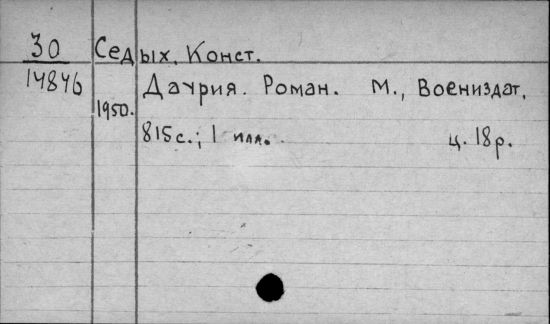 30 Седых, Конст.
14846 Даурия. Роман. М., Воениздат,
1950.
815с.; 1 илл. ц. 18р.